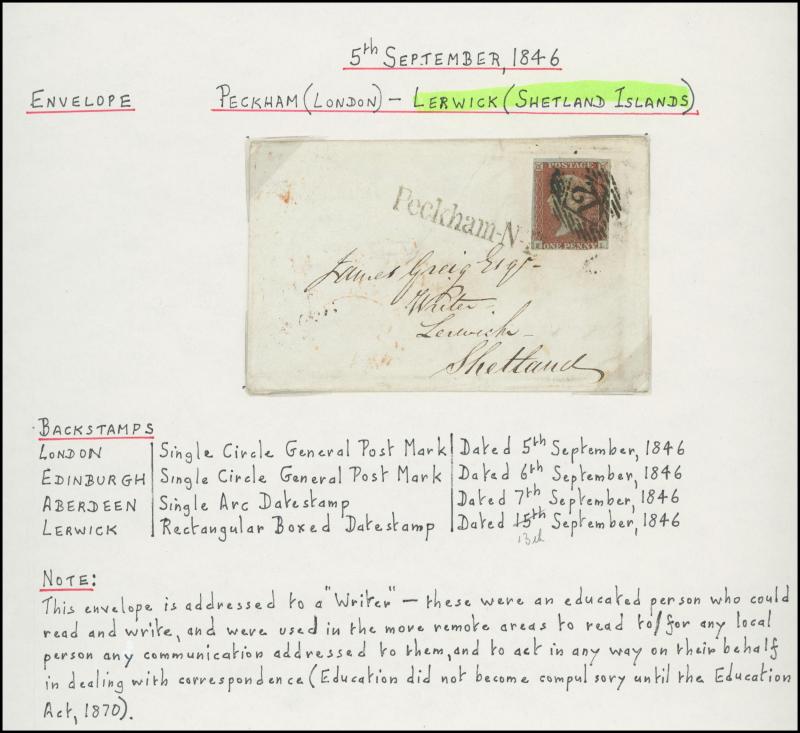 5th September, 1846
Envelope Peckham (London) – Lerwick (Shetland Islands)
POSTAGE
Peckham-N-
ONE PENNY
James Greig Esqr
Writer
Lerwick
Shetland
Backstamps
London Single Circle General Post Mark Dated 5th September, 1846
Edinburgh Single Circle General Post Mark Dated 6th September, 1846
Aberdeen Single Arc Datestamp Dated 7th September, 1846
Lerwick Rectangular Boxed Datestamp Dated 15th September, 1846
13th
Note:
This envelope is addressed to a "Writer" – these were an educated person who could
read and write, and were used in the more remote areas to read to/for any local
person any communication addressed to them, and to act in any way on their behalf
in dealing with correspondence (Education did not become compulsory until the Education
Act, 1870).